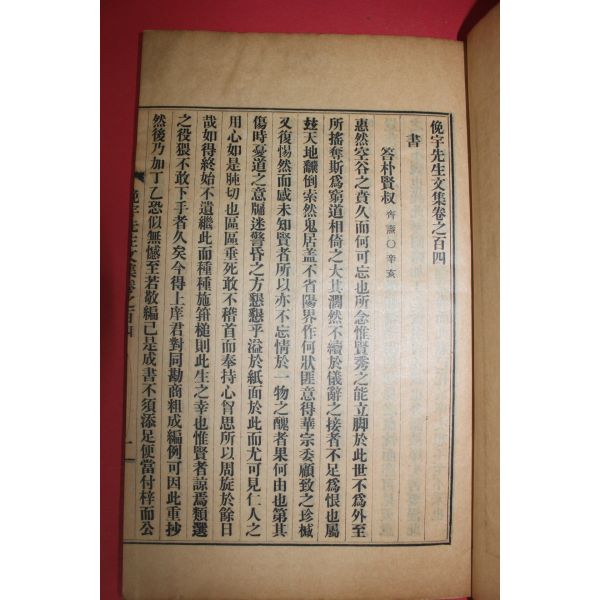 俛宇先生文集卷之百四
書
答朴賢叔 齊蓋〇辛亥
惠然空谷之賁久而何可忘也所念惟賢秀之能立脚於此世不爲外至
所搖奪斯爲窮道相倚之大其濶然不續於儀辭之接者不足爲恨也屬
玆天地飜倒索然鬼居盖不省陽界作何狀匪意得華宗委顧致之珍椷
又復惕然而感未知賢者所以亦不忘情於一物之醜者果何由也第其
傷時憂道之意牖迷警昏之方懇懇乎溢於紙面於此而尤可見仁人之
用心如是肫切也區區垂死敢不稽首而奉持心曾思所以周旋於餘日
哉如得終始不遺繼此而種種施箝槌則此生之幸也惟賢者諒焉類選
之役猥不敢下手者久矣今得上庠君對同勘商粗成編例可因此重抄
然後乃加丁乙恐似無憾至若敬編已是成書不須添足便當付梓而公
俛宇先生文集卷之百四 一